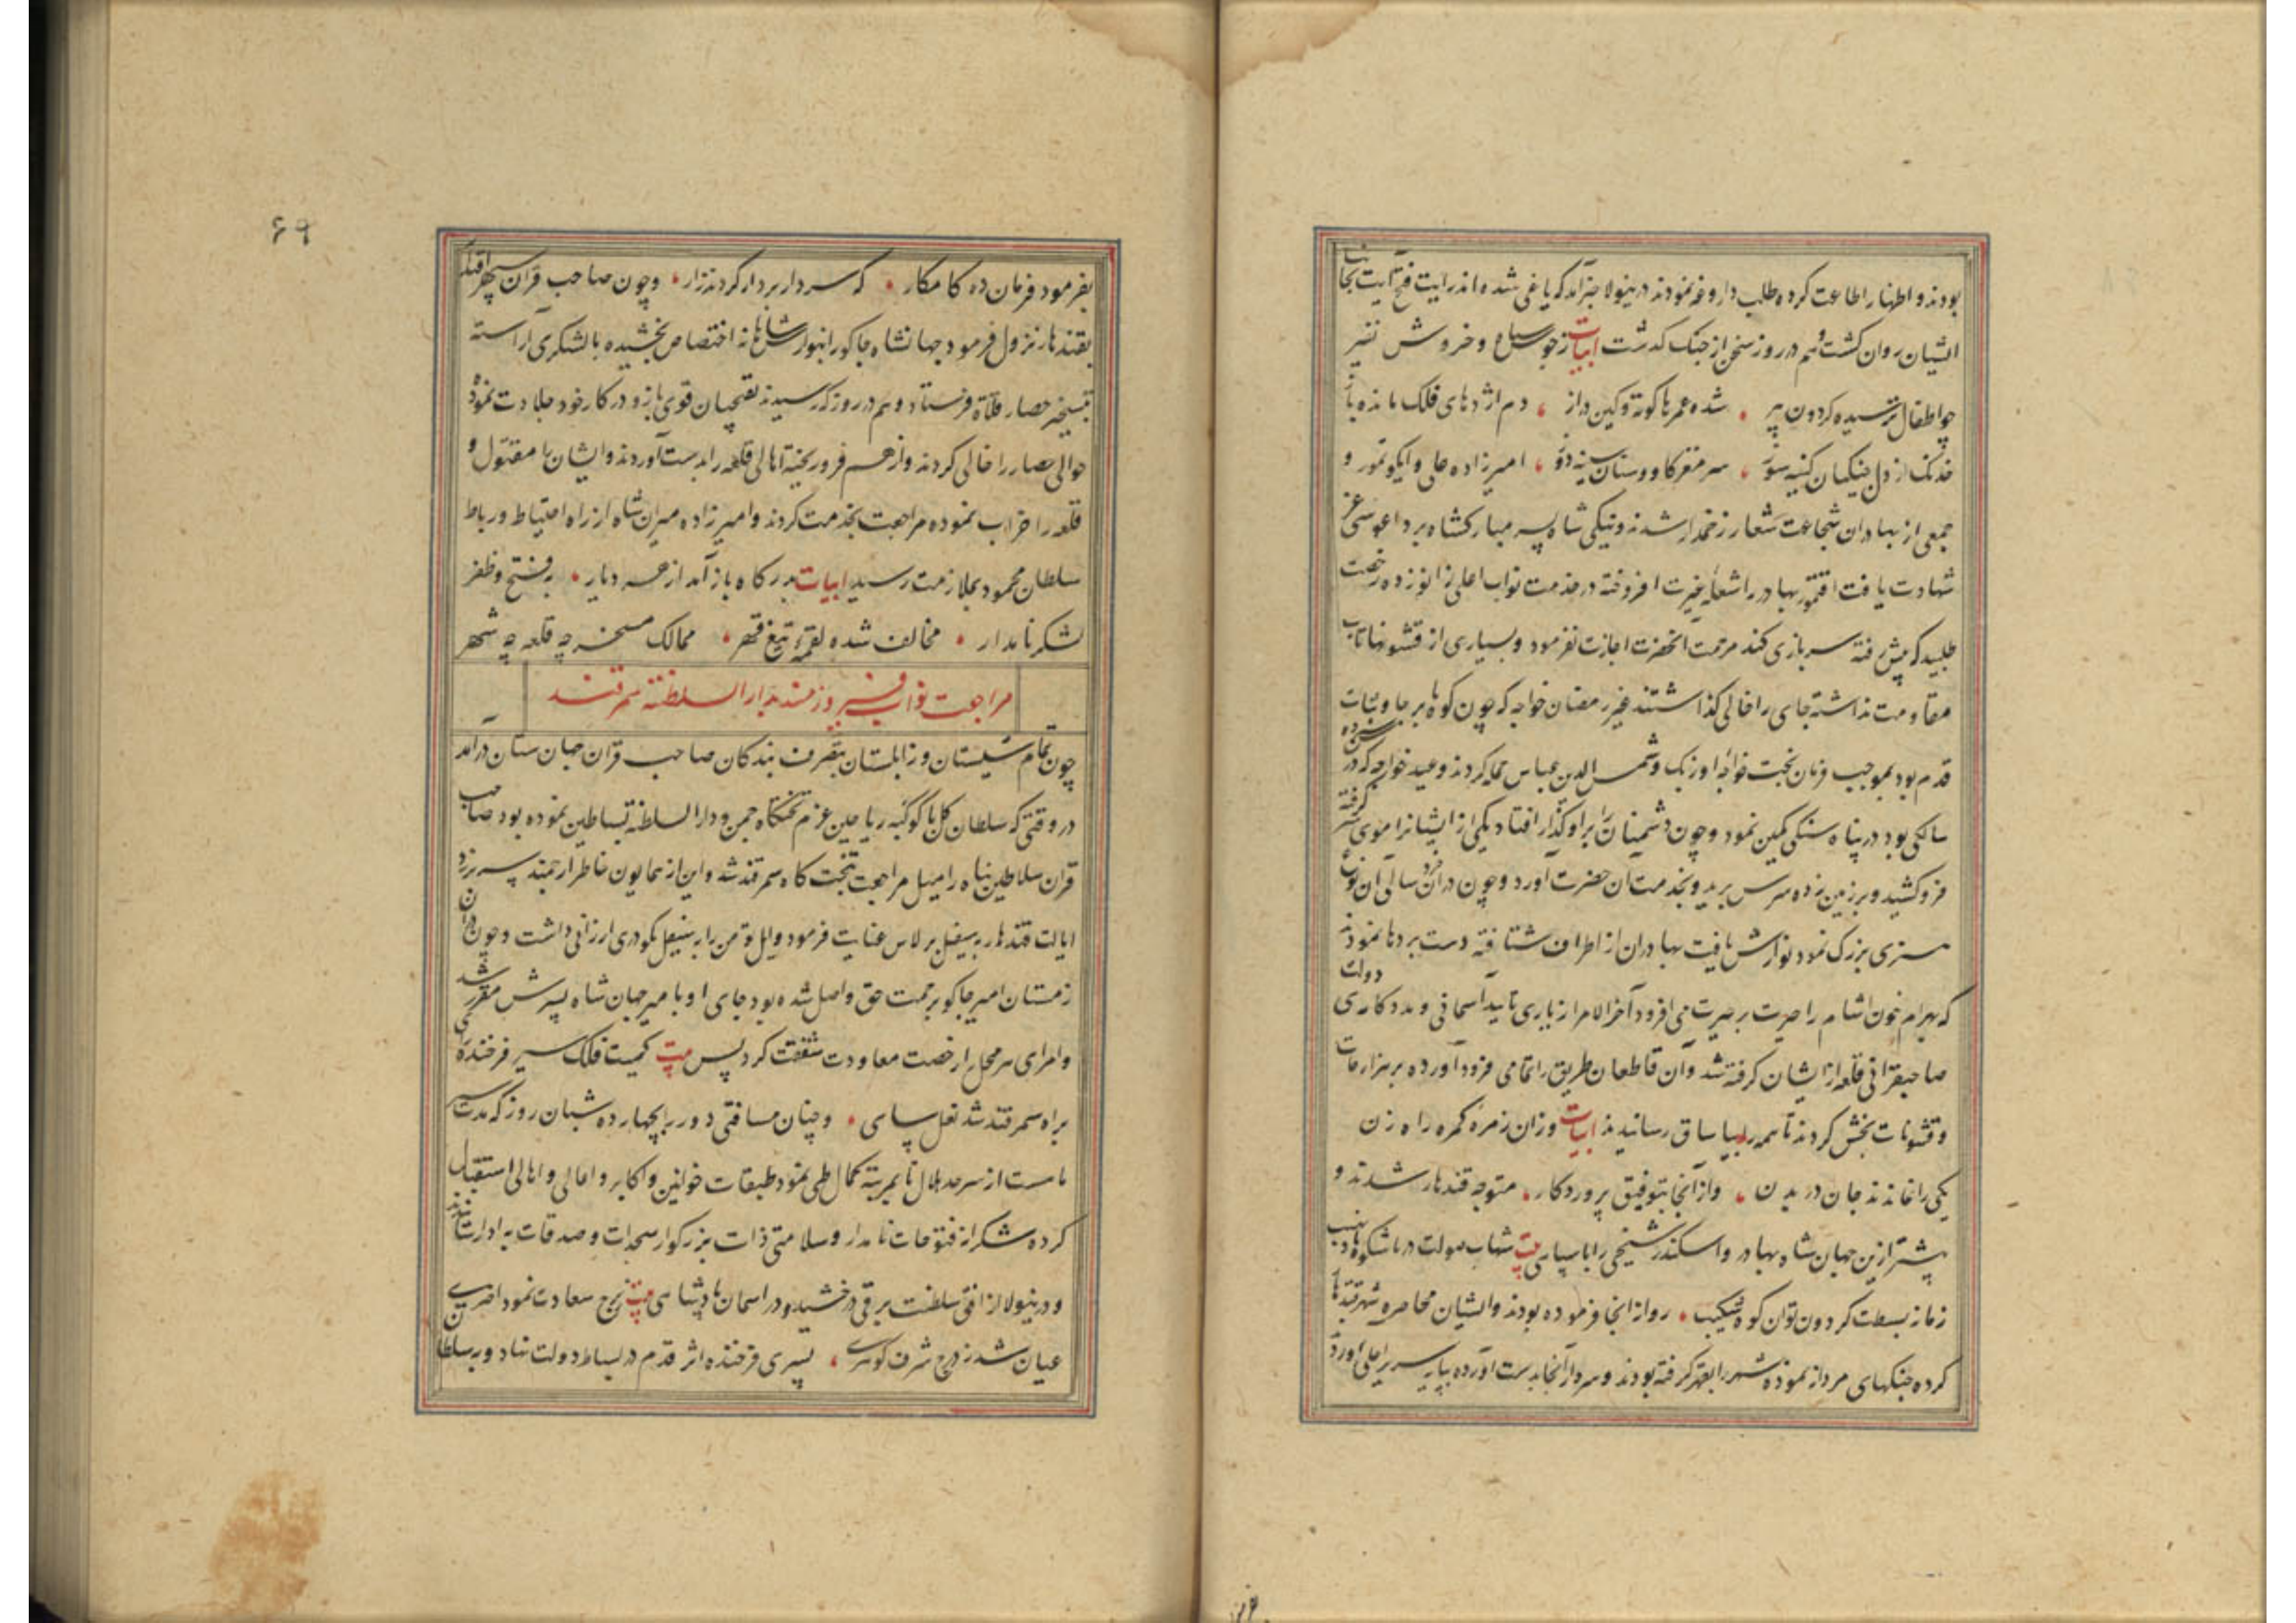 بودند و اظهار اطاعت کرده طلب داروغه نمودند درینولا خبر آمد که یاغی شده اند رایت فتح آیت بجانب
ایشان روان کشت و هم در روز سخن از جنک کذشت ابیات ز جوش سپاه و خروش نفیر
چو اطفال ترسیده کردون پیر شده عمرها کوته و کین دراز دم اژدهای فلک مانده باز
خدنک از دل جنکیان کینه توز سر مغز کاو و سنان سینه دوز امیرزاده علی و ایکو تمور و
جمعی از بهادران شجاعت شعار زخمدار شدند و نیکی شاه پسر مبارکشاه برداعوسی عز
شهادت یافت اقتمور بهادر را شعله غیرت افروخته در خدمت نواب اعلی زانو زده رخصت
طلبید که پیش رفته سربازی کند مرحمت انحضرت اجازت نفرمود و بسیاری از قشونها تاب
مقاومت نداشته جای را خالی کذاشتند غیر رمضان خواجه که چون کوه بر جا و ثبات
قدم بود بموجب فرمان بخت خواجه اوزبک و شمس الدین عباس حمله کردند و عید خواجه که در سن ده
سالکی بود در پناه سنکی کمین نمود و چون دشمنان را بر او کذار افتاد یکی از ایشانرا موی سر کرفته
فرو کشید و بر زمین زده سرش برید و بخدمت ان حضرت آورد و چون در ان خرد سالی ان نوع
هنری بزرک نمود نوازش یافت بهادران از اطراف شتافته دست بردها نمودند
که بهرام خون اشام را حیرت بر حیرت می افزود آخر الامر از یاری تایید آسمانی و مددکاری دولت
صاحبقرانی قلعه از ایشان کرفته شد و آن قاطعان طریق را تمامی فرود آورده بر هزارجات
و قشونات بخش کردند تا همه را بیاساق رسانیدند ابیات و زان زمره کمره راه زن
یکی را نماندند جان در بدن و از آنجا بتوفیق پروردکار متوجه قندهار شدند و
پیشتر ازین جهان شاه بهادر و اسکندر شیخی را با سپاهی بیت شهاب صولت دریا شکوه
زمانه بسطت کردون توان کوه شکیب روانه انجا فرموده بودند و ایشان محاصره شهر قندهار
کرده جنکهای مردانه نموده شهر را بقهر کرفته بودند و سردار آنجا بدست آورده بپایه سریر اعلی آورد
۶۹
بفرمود فرمان ده کامکار که سردار بردار کردند زار و چون صاحب قران سپهر اقتدار
بقندهار نزول فرمود جهانشاه جاکو را بنوازش شاهانه اختصاص بخشیده با لشکری آراسته
بتسخیر حصار قلاة فرستاد و هم در روز که رسیدند نقبچیان قوی بازو در کار خود جلادت نموده
حوالی حصار را خالی کردند و از هم فرو ریخته اهالی قلعه را بدست آوردند و ایشان را مقتول و
قلعه را خراب نموده مراجعت بخدمت کردند و امیرزاده میران شاه از راه احتیاط و رباط
سلطان محمود بملازمت رسید ابیات بدرکاه باز آمد از هر دیار بفتح و ظفر
لشکر نامدار مخالف شده لقمه تیغ قهر ممالک مسخر چه قلعه چه شهر
مراجعت نواب فیروزمند بدار السلطنه سمرقند
چون تمام سیستان و زابلستان بتصرف بندکان صاحب قران جهان ستان درآمد
در وقتی که سلطان کل با کوکبه ریاحین عزم تختکاه چمن و دار السلطنه بساطین نموده بود صاحب
قران سلاطین پناه را میل مراجعت بتخت کاه سمرقند شد و این از همایون خاطر ارجمند سر بر زد
ایالت قندهار بسیفل برلاس عنایت فرمود و ایل تومن را بسیفل نکودری ارزانی داشت و چون در ان
زمستان امیر جاکو برحمت حق واصل شده بود جای او با میر جهان شاه پسرش مقرر شد
و امرای سرمحل را رخصت معاودت شفقت کرد پس بیت کمیت فلک سیر فرخنده پی
براه سمرقند شد نعل سای و چنان مسافتی دور را بچهارده شبان روز که مدت سیر
ماست از سرحد هلال تا بمرتبه کمال طی نمود طبقات خواتین و اکابر و اعالی و اهالی استقبال
کرده شکرانه فتوحات نامدار و سلامتی ذات بزرکوار سجدات و صدقات به ادا رسانیدند
و درینولا از افق سلطنت برقی درخشید و در اسمان پادشاهی بیت ز برج سعادت نمود اختری
عیان شد ز درج شرف کوهری پسری فرخنده اثر قدم در بساط دولت نهاد و بسلطان